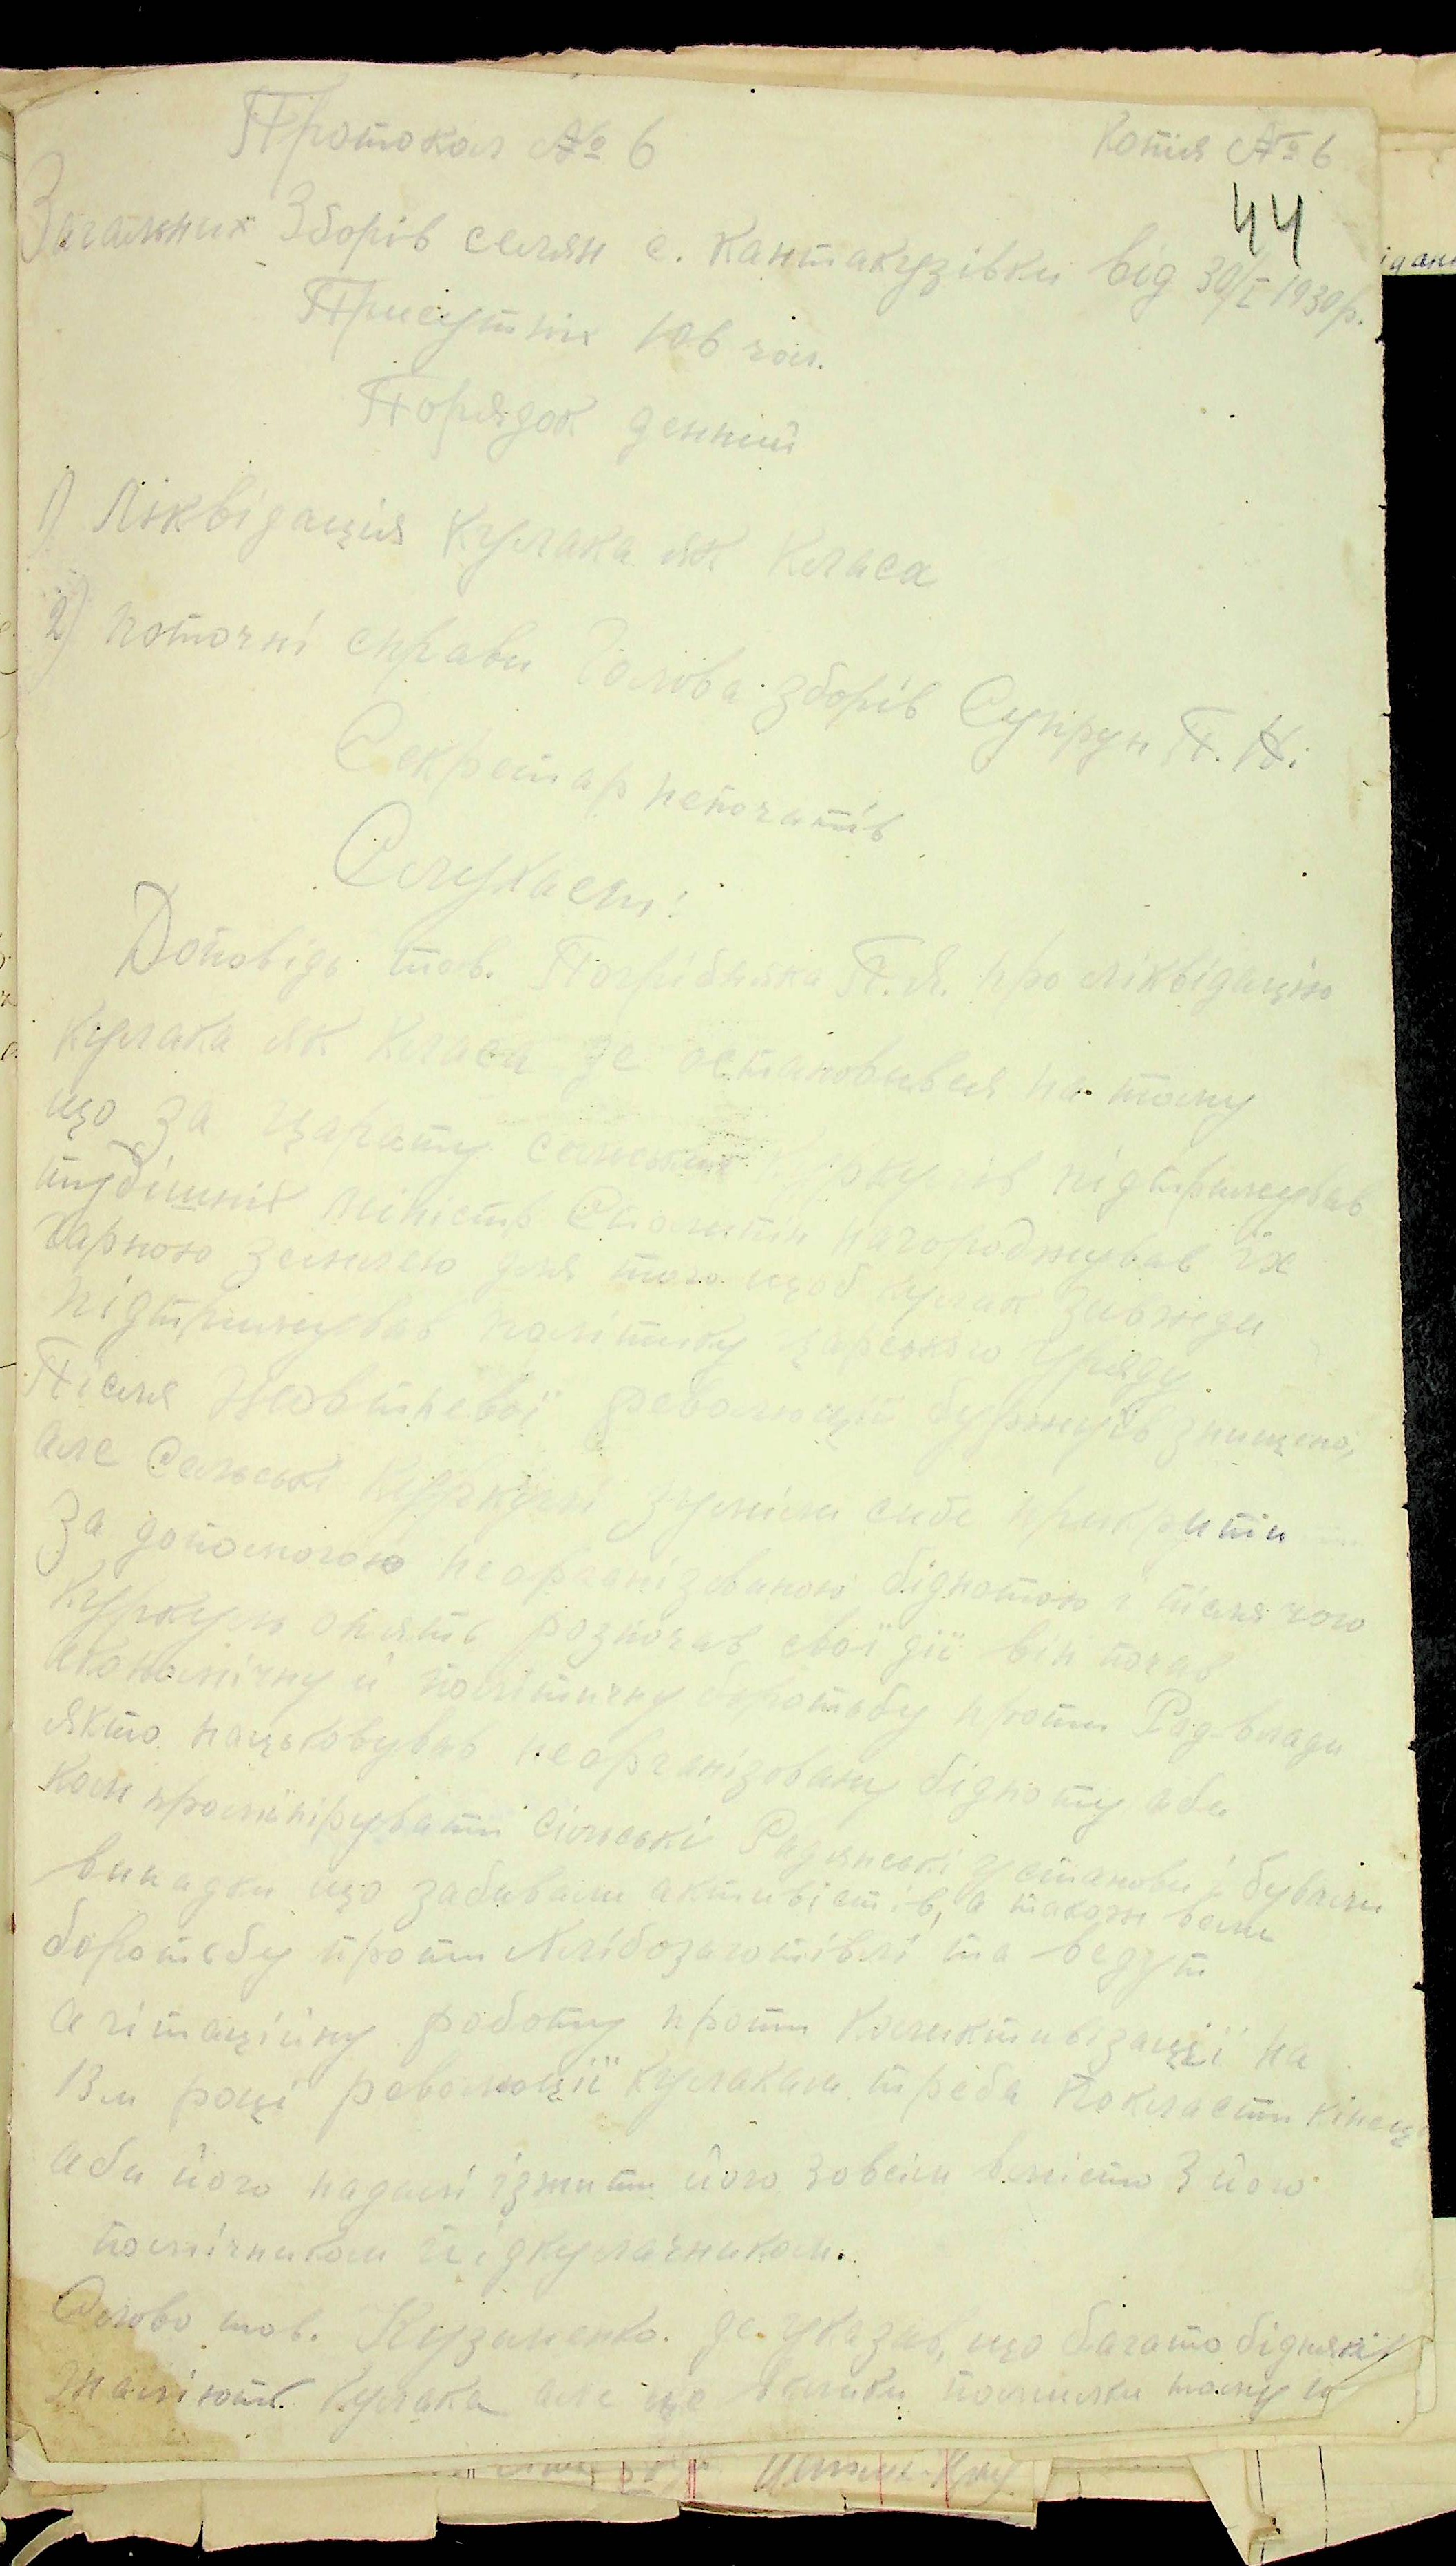 Протокол № 6
Копія № 6
44
Загальних Зборів селян с. Кантакузівки від 30/I 1930 р.
Присутніх 106 чол.
Порядок денний
1) Ліквідація Кулака як Класа
2) поточні справи Голова зборів Супрун П. Н.
Секретар непочатів
Слухали:
Доповідь тов. Погрібняка П.Я. про ліквідацію
кулака як Класа де остановився на тому
що за царату сельських куркулів підтримував
тудішній міністр Столипін нагороджував їх
гарною землею для того щоб кулак завжди
підтримував політику царського Уряду
Після Жовтневої революції буржуїв знищено,
але Сельські Куркулі зуміли себе прикрити
За допомогою неорганізованою біднотою і після чого
Куркуль опять розпочав свої дії він почав
економічну й політичну боротьбу проти Рад-влади
якто нацьковував неорганізовану бідноту аби
компромінірувати сільські Радянські установи і бували
випадки що забивали активістів, а також вели
боротьбу проти Хлібозаготівлі та ведут
агітаційну роботу проти Колективізації на
13м році революції кулакам треба покласти кінець
аби його надалі ізжити його зовсім вмісто з його
помічником підкулачником.
Слово тов. Кузименко. де указав, що багато бідняків
жаліють Кулака але це велики помилки тому й